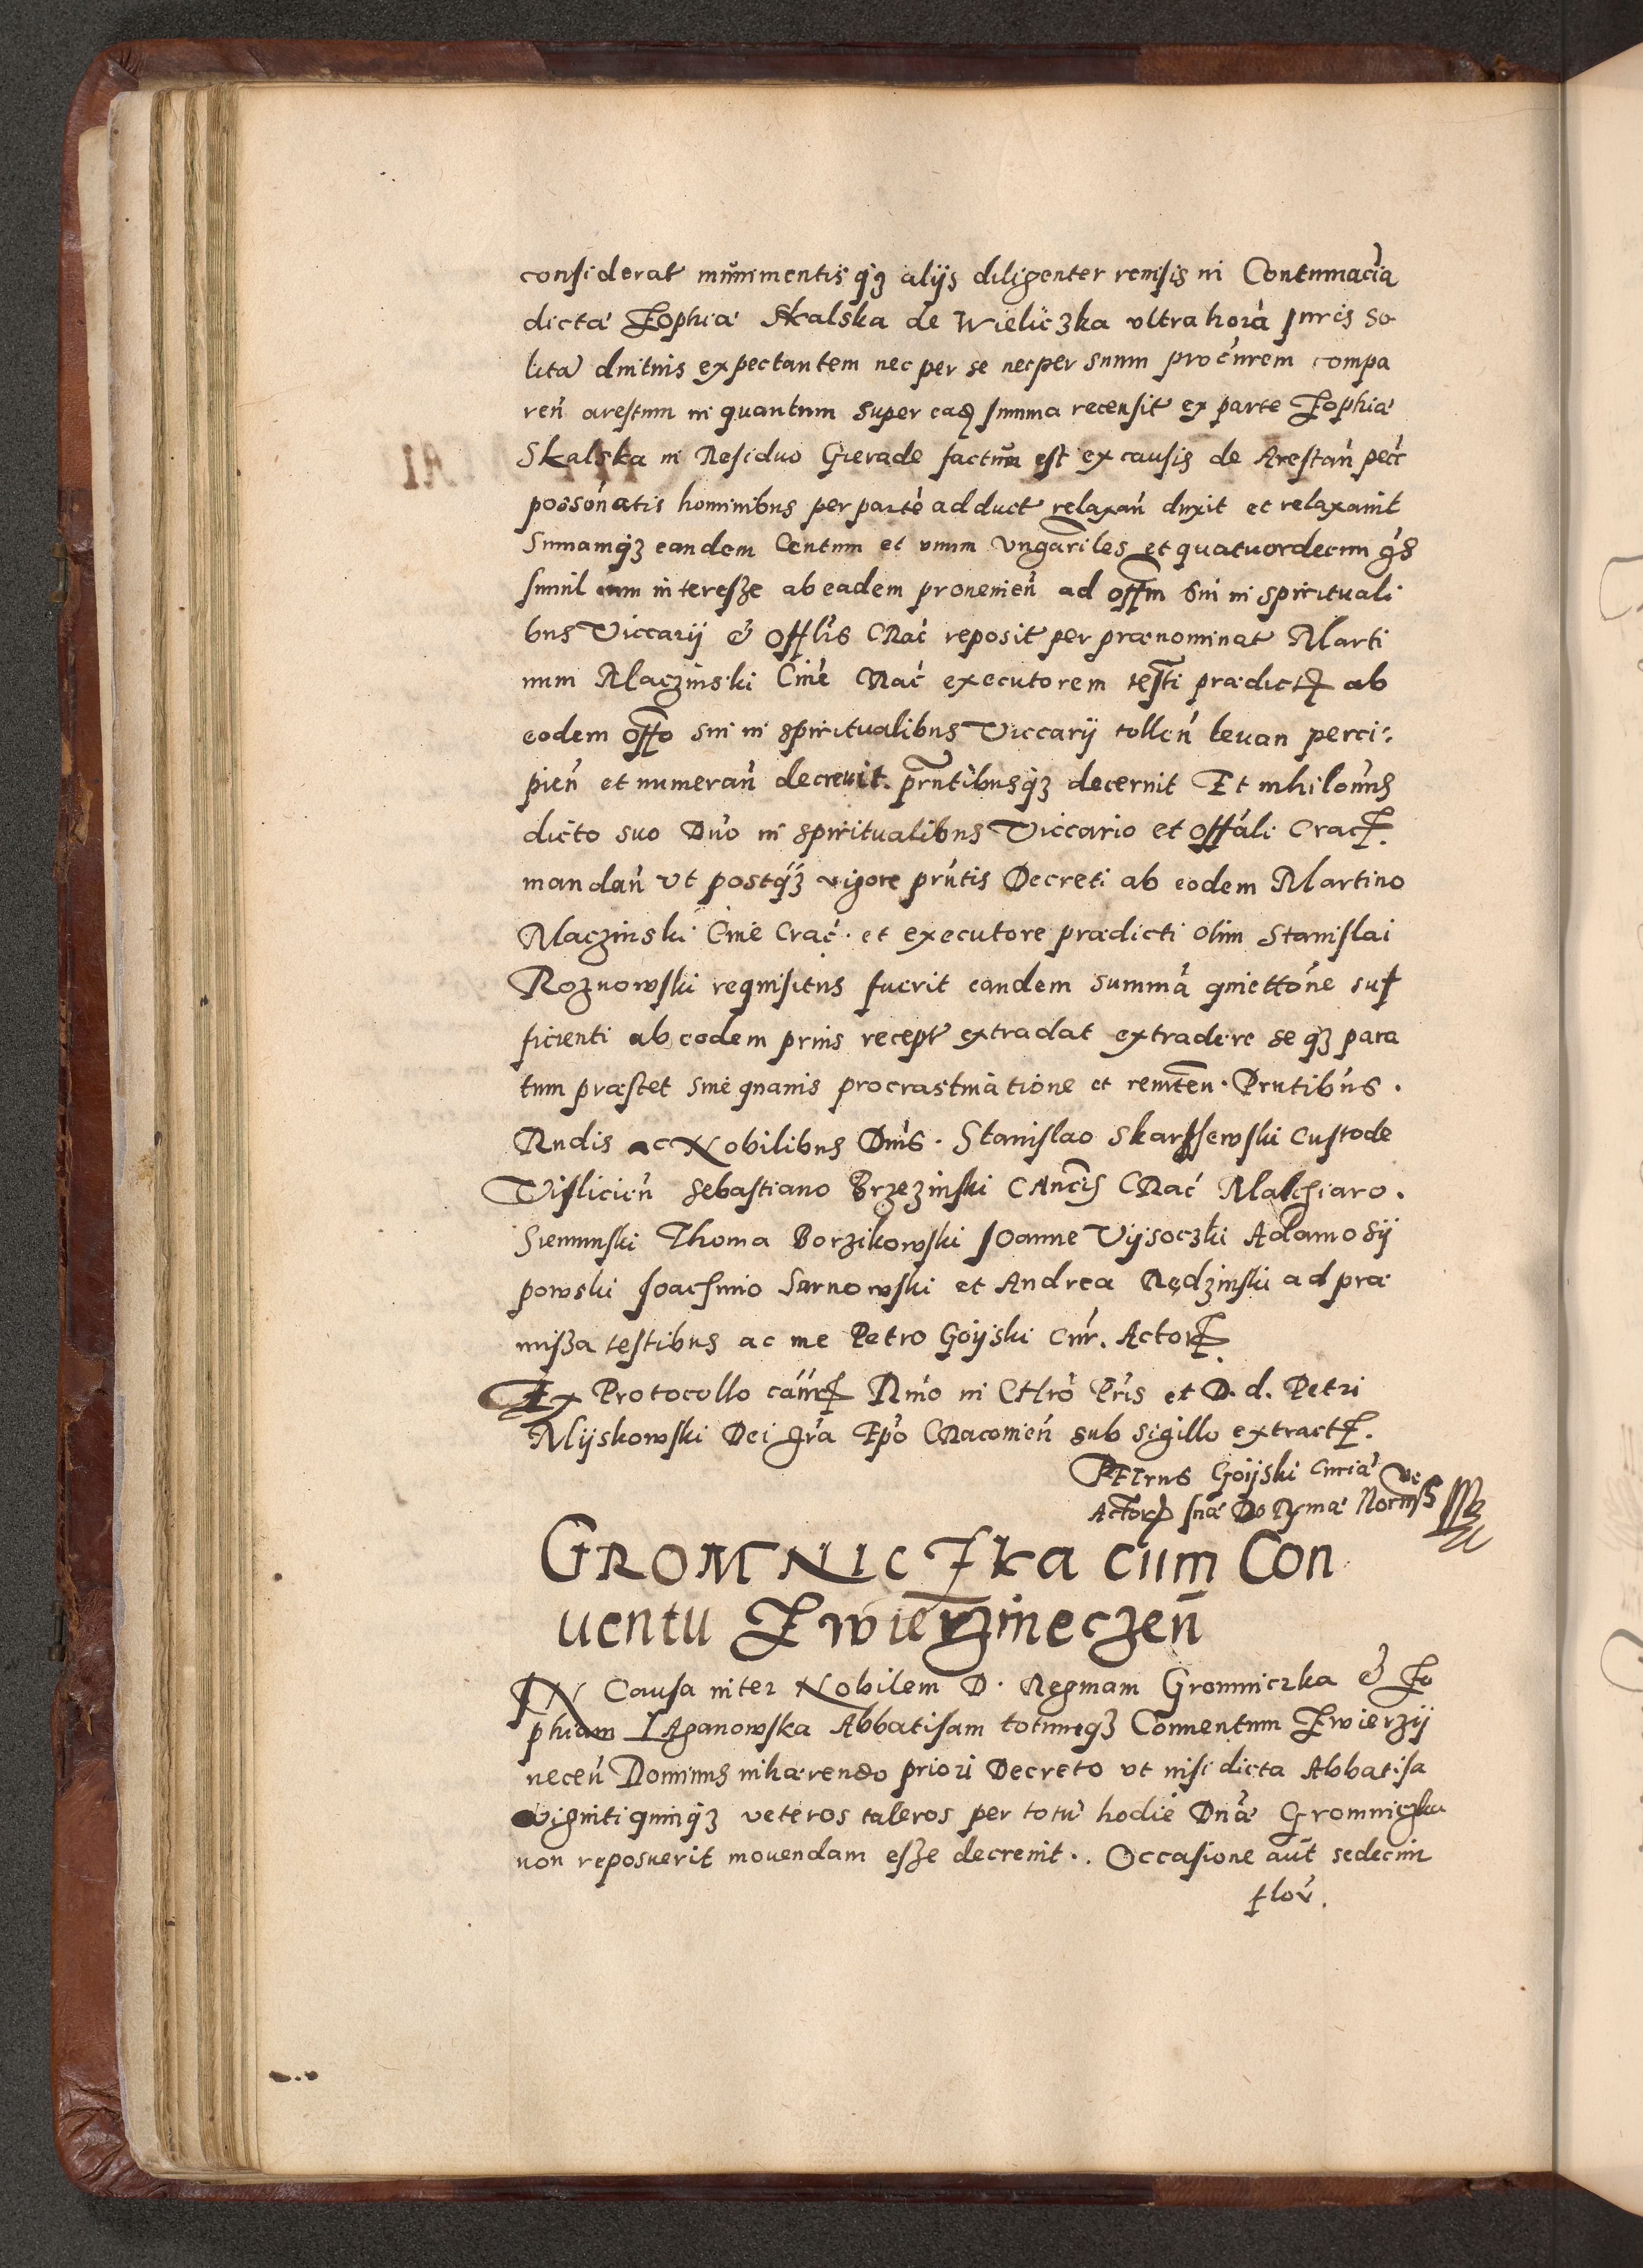 considerat munimentisq3 alijs diligenter reuisis in Contumaciã
dictæ Zophiæ Skalska de Wieliczka vltra horã Juris so
litã diutius expectantem nec per se nec per suum procürem compa
reñ arestum in quantum super eadẽ summa recensit ex parte Zophiæ
Skalska in Residuo Gierade factum est ex causis de Arestañ pecc
possonatis hominibus per partẽ adduct relaxañ duxit et relaxauit
Sumamq3 eandem Centum et vnum Vngariles et quatuordecim gs
simul cum interesze ab eadem prouenieñ ad offm sui in spirituali
bus Viccarij & Offlis CRac reposit per prænominat Marti
num Maczinski Ciue CRac executorem testi prædict ab
eodem offo sui in spiritualibus Viccarij tolleñ leuan perci:
pieñ et numerañ decreuit. prntibusq3 decernit Et nihilouns
dicto suo Dno in spiritualibus Viccario et Offali Crac
mandañ vt postq3 vigore prntis Decreti ab eodem Martino
Maczinski Ciue Crac. et executore prædicti olim Stanislai
Roznowski requisitus fuerit eandem summã quiettõne suf
ficienti ab eodem prius recept extradat extradere se q3 para
tum præstet sine quauis procrastinatione et remten. Prntibus.
Rndis ac Nobilibus Dnis. Stanislao Skarssewski Custode
Visliciẽn Sebastiano Brzezinski CAncis CRac Malchiaro.
Sieminski Thoma Borzikowski Joanne Vijsoczki Adamo Sij
powski Joachimo Sarnowski et Andrea Rędzinski ad præ
missa testibus ac me Petro Goijski Cur. Actor
Ex Protocollo caur Rmo in CHro Pris et D. d. Petri
Mijskowski Dei gra Epo CRacouieñ sub sigillo extract.
PETrus Goijski Curiæ
GROMNICZka cum Con
uentu Zwierzineczeñ
IN Causa inter Nobilem D. Reginam Gromniczka & Zo
phiam IAganowska Abbatisam totumq3 Conuentum Zwierzij
neceñ Dominus inhærendo priori Decreto vt nisi dicta Abbatisa
vigintiquinq3 veteros taleros per totũ hodie Dnæ Gromniczka
non reposuerit mouendam esze decreuit.. Occasione aut sedecim
flov.